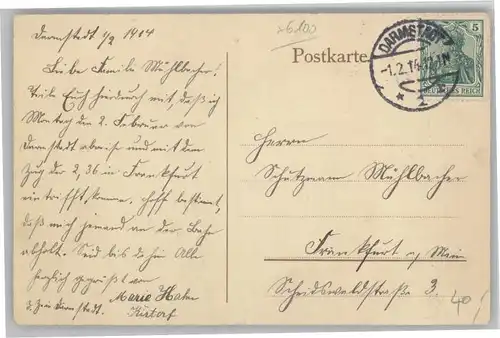 Darmstadt 1/2 1914
Liebe Familie Mühlbacher!
Teile Euch hierdurch mit, daß ich
Montag den 2. Februar von
Darmstadt abreise und mit dem
Zug der 2,36 in Frankfurt
eintrifft, komme. hoffe bestimmt,
daß mich jemand an der Bahn
abholt. Seid bis dahin Alle
herzlich gegrüßt von
Marie Hahn
z. Zeit Darmstadt.
Postkarte
DARMSTADT
-1.2.14.
* 2
5
DEUTSCHES REICH
Herrn
Schutzmann Mühlbacher
Frankfurt a/ Main
Scheidswaldstraße 3.
40